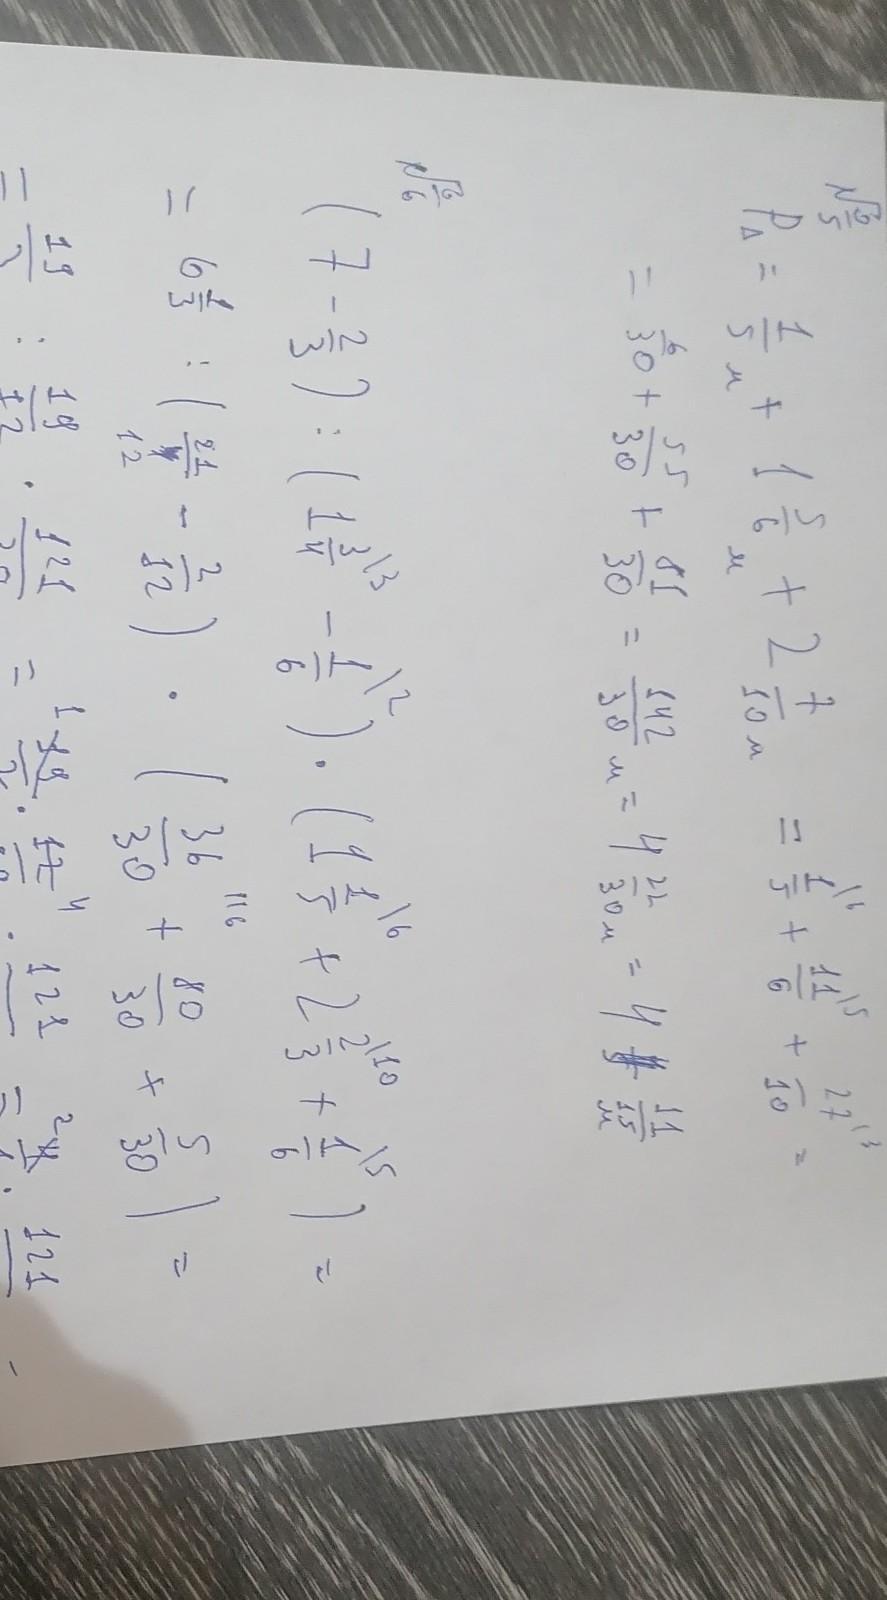 №5
P△ = 1/5 м + 1 5/6 м + 2 7/10 м = 1/5 \6 + 11/6 \5 + 27/10 \3 =
= 6/30 + 55/30 + 81/30 = 142/30 м = 4 22/30 м = 4 11/15 м
№6
(7 - 2/3) : (1 3/4 \3 - 1/6 \2) · (1 1/5 \6 + 2 2/3 \10 + 1/6 \5) =
= 6 1/3 : (21/12 - 2/12) · (36/30 + 80/30 + 5/30) =
116
= 19/ : 19/12 · 121/ = 1 19/ · 12/ 4 · 121/ = 2 4/ · 121/